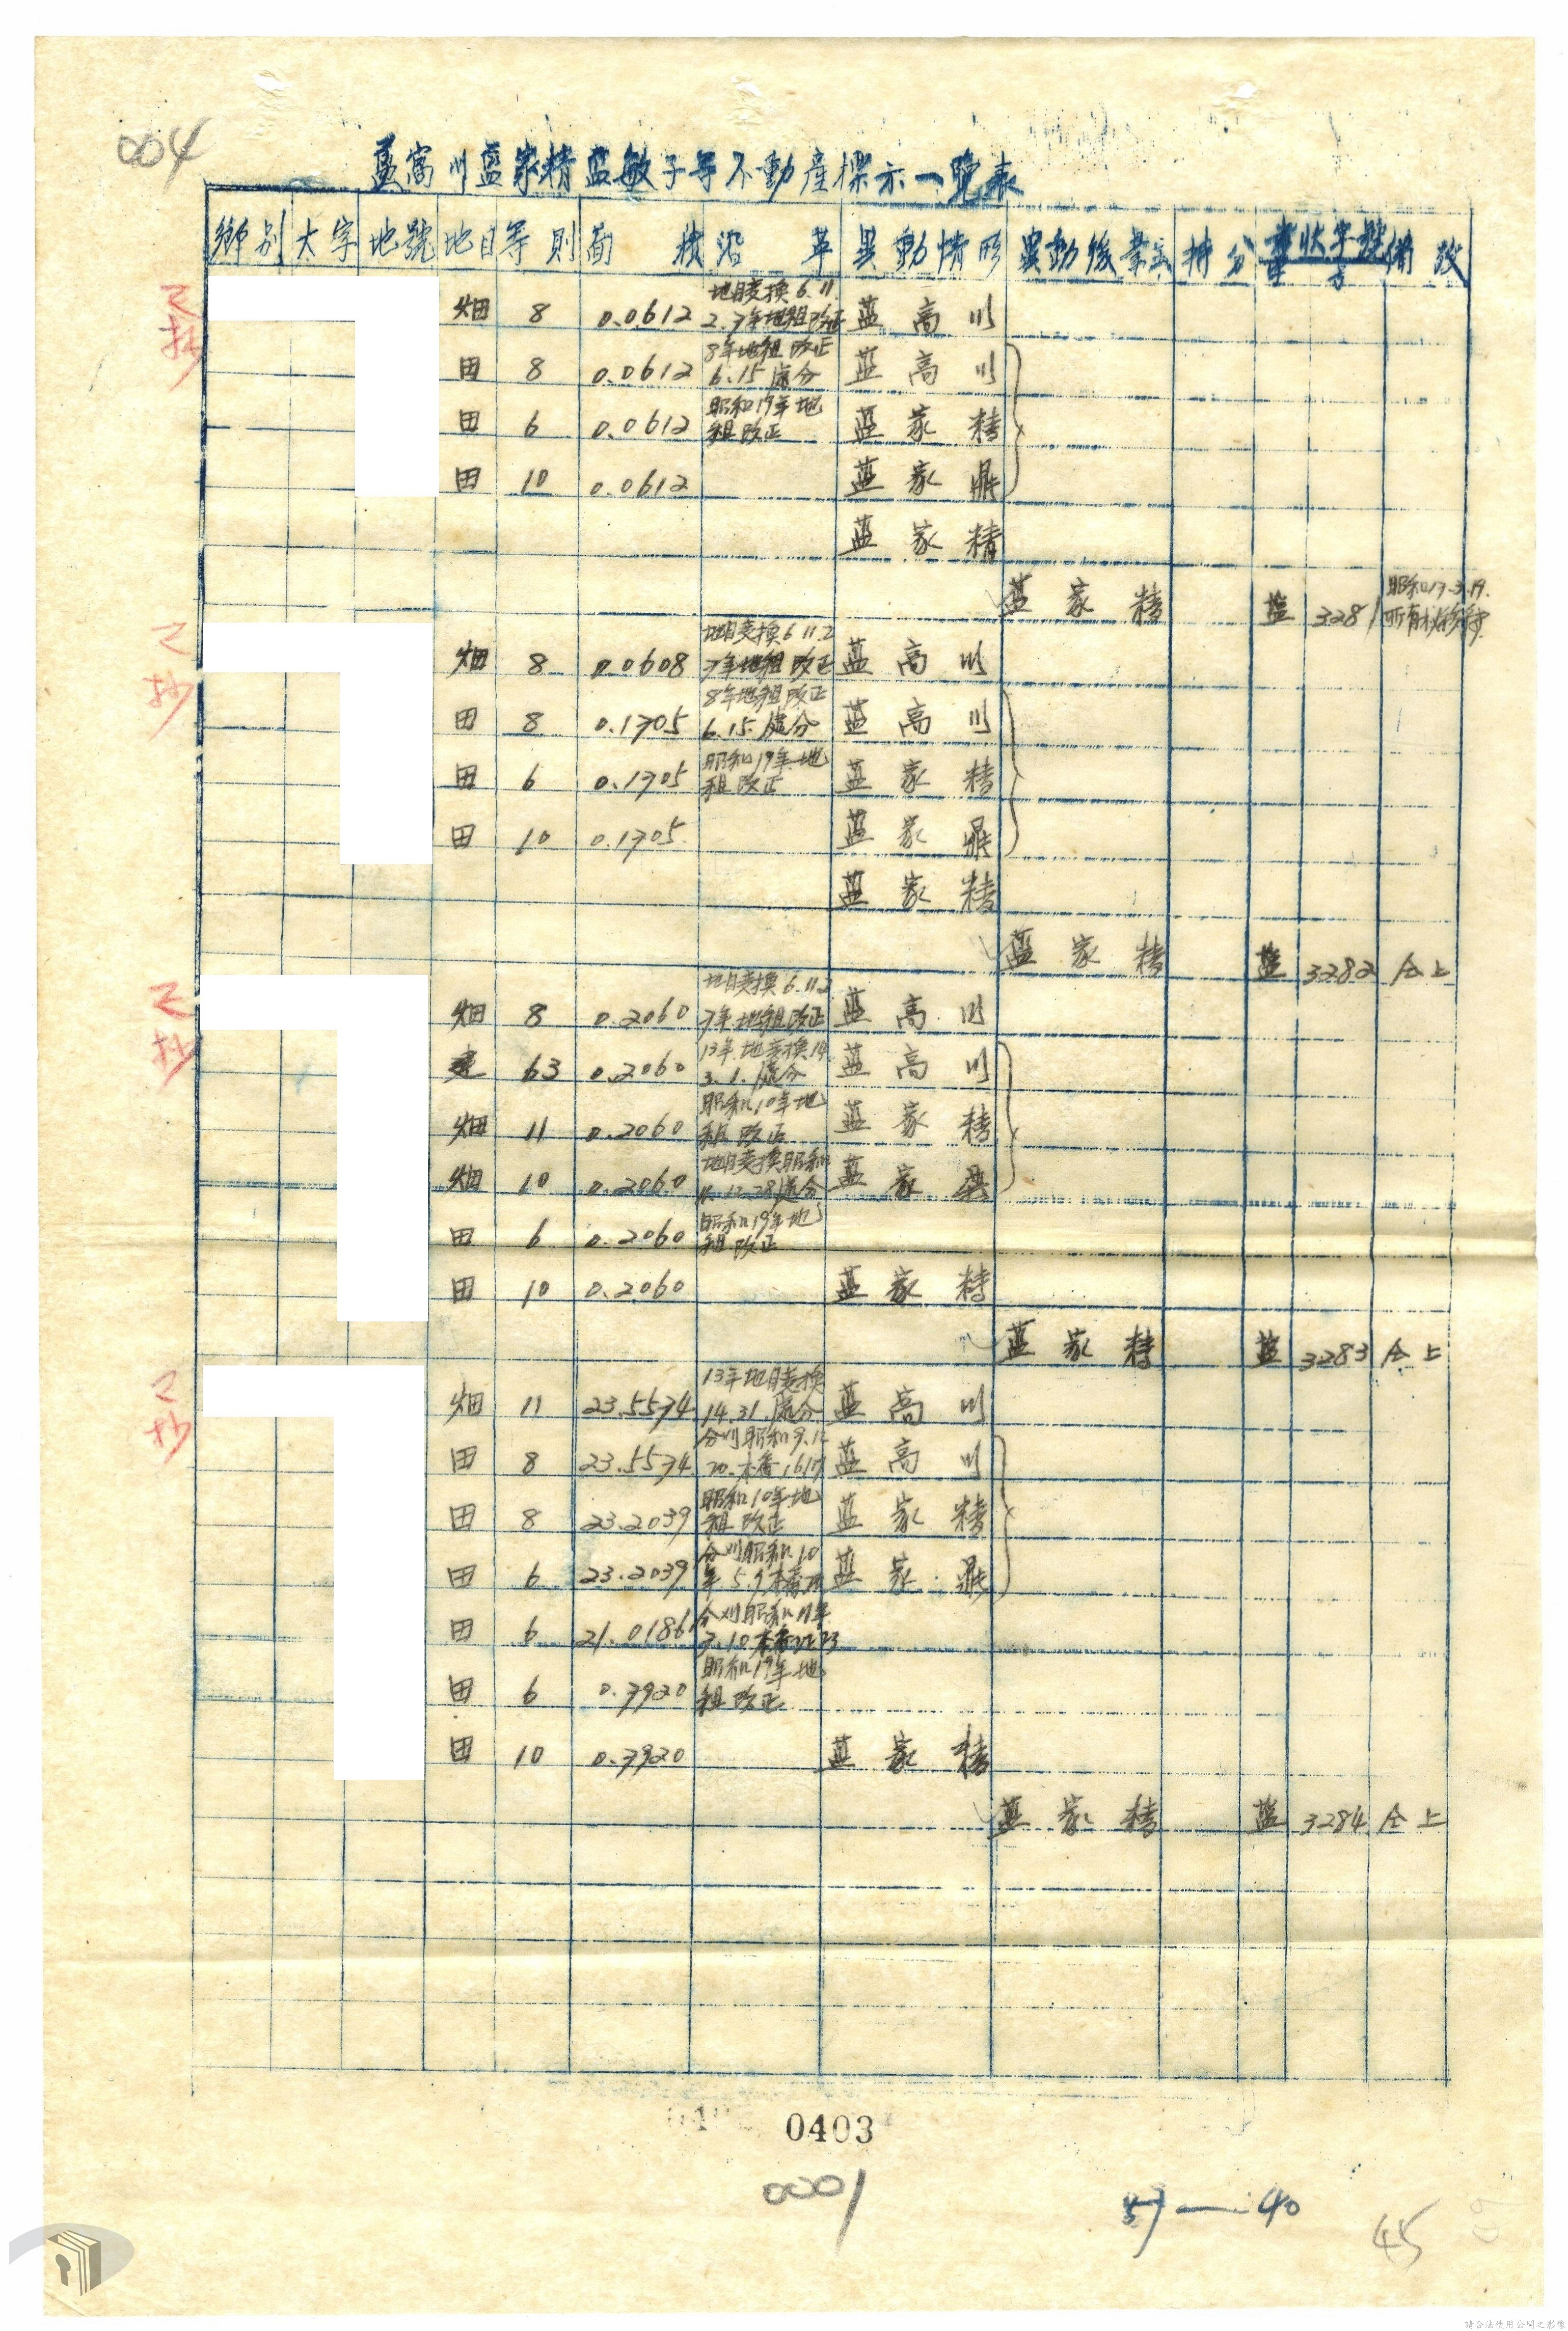 004
藍高川藍家精藍敏子等不動產標示一覽表
鄉別 大字 地號 地目 等則 面積 沿革 異動情形 異動後業主 持分 書狀字號 備攷
已抄
畑 8 0.0612 地目変換6.11.2.7年地租改正 藍高川
田 8 0.0612 8年地租改正6.15處分 藍高川
田 6 0.0612 昭和19年地租改正 藍家精
田 10 0.0612 藍家鼎
藍家精
藍家精 鹽 3281 昭和17.3.19.所有权移轉
已抄
畑 8 0.0608 地目変換6.11.2 7年地租改正 藍高川
田 8 0.1705 8年地租改正6.15.處分 藍高川
田 6 0.1705 昭和19年地租改正 藍家精
田 10 0.1705 藍家鼎
藍家精
藍家精 鹽 3282 仝上
已抄
畑 8 0.2060 地目変換6.11.2 7年地租改正 藍高川
建 63 0.2060 13年地変換14.3.1.處分 藍高川
畑 11 0.2060 昭和10年地租改正 藍家精
畑 10 0.2060 地目変換昭和11.12.28處分 藍家鼎
田 6 0.2060 昭和19年地租改正
田 10 0.2060 藍家精
藍家精 鹽 3283 仝上
已抄
畑 11 23.5574 13年地目変換14.31.處分 藍高川
田 8 23.5574 分刈昭和9.12 20.本番1617 藍高川
田 8 23.2039 昭和10年地租改正 藍家精
田 6 23.2039 分刈昭和10年5.9本番 藍家鼎
田 6 21.0186 分刈昭和11年7.10本番
田 6 0.7920 昭和19年地租改正
田 10 0.7920 藍家精
藍家精 鹽 3284 仝上
0403
0001
57—40
45
請合法使用公開之影像